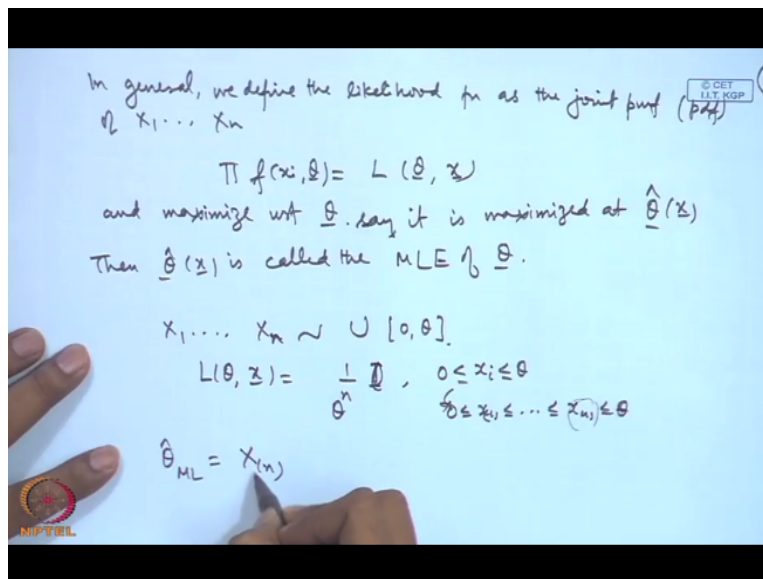 In general, we define the likelihood fn as the joint pmf (pdf)
© CET
I.I.T. KGP
of X1 ... Xn
Π f(xi, θ) = L (θ, x)
and maximize wrt θ. say it is maximized at θ̂(x)
Then θ̂(x) is called the MLE of θ.
X1 .... Xn ~ U [0, θ].
L(θ, x) = 1/θ^n , 0 ≤ xi ≤ θ
0 ≤ x(1) ≤ ... ≤ x(n) ≤ θ
θ̂ML = X(n)
NPTEL